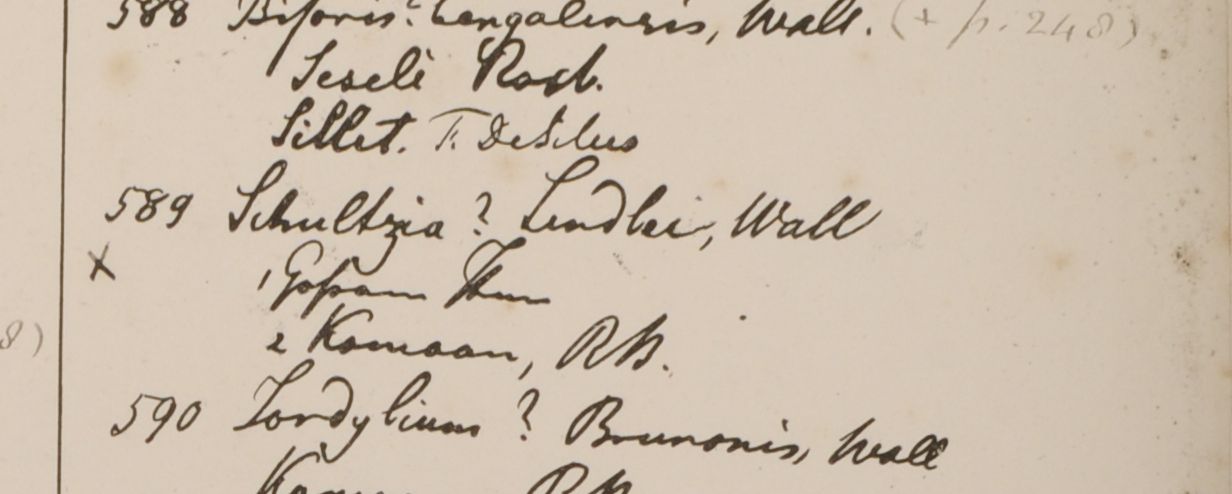 588 Biforis? bengalensis, Wall. (+ p. 248)
Seseli Roxb.
Sillet. F. DeSilva
589 Schultzia? Lindlei, Wall
x
1 Gossam Than
2 Kamaon, RB.
8)
590 Tordylium? Brunonis, Wall
RB